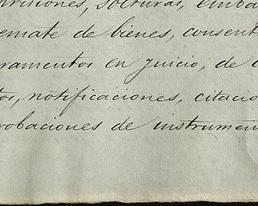 visiones, solturas, emba
emate de bienes, consent
ramentos en juicio, de c
tos, notificaciones, citacio
robaciones de instrumen